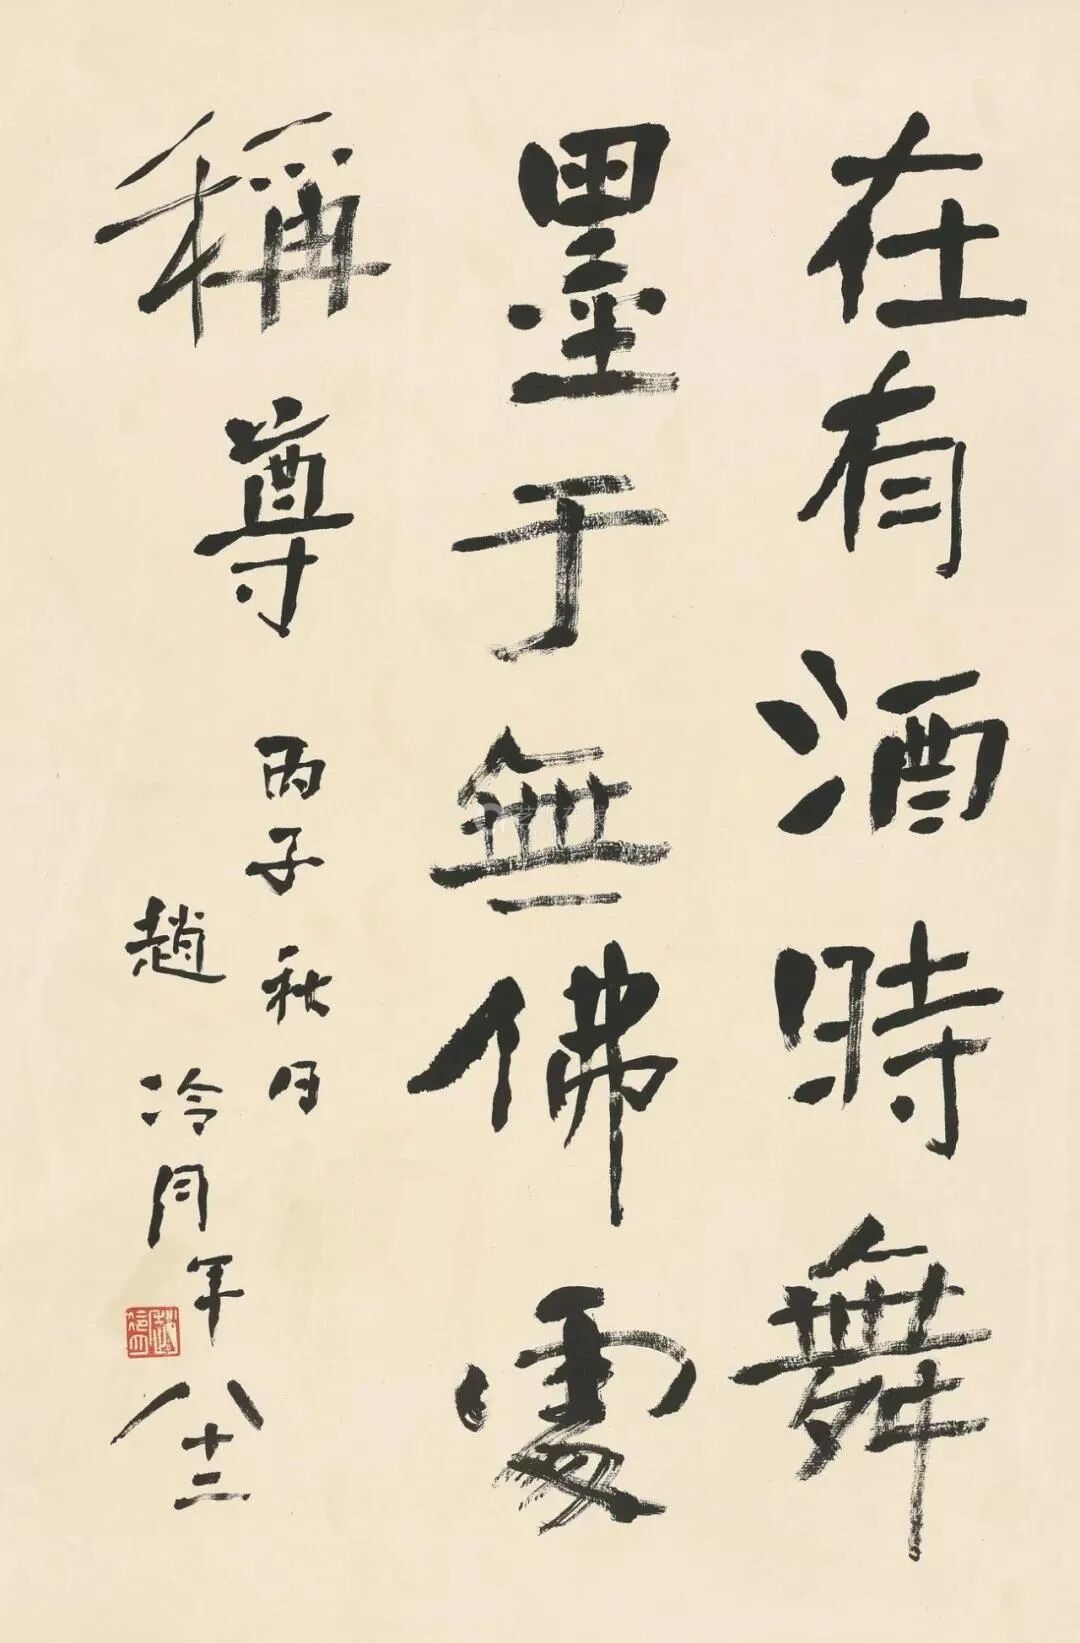 在有酒時舞
墨于無佛處
稱尊
丙子秋月
趙冷月年八十二
趙冷月